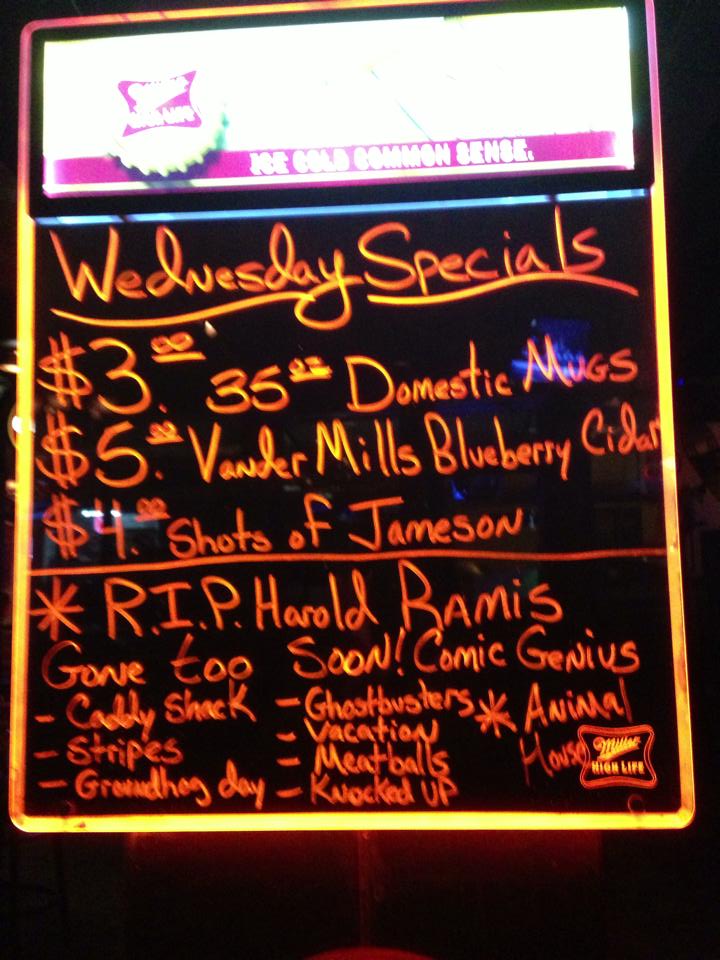 Miller
HIGH LIFE
ICE COLD COMMON SENSE.
Wednesday Specials
$3.00 35oz Domestic Mugs
$5.00 Vander Mills Blueberry Cidar
$4.00 Shots of Jameson
* R.I.P. Harold Ramis
Gone too Soon! Comic Genius
- Caddy Shack - Ghostbusters * Animal
- Stripes - Vacation House
- Groundhog day - Meatballs
- Knocked up
Miller
HIGH LIFE